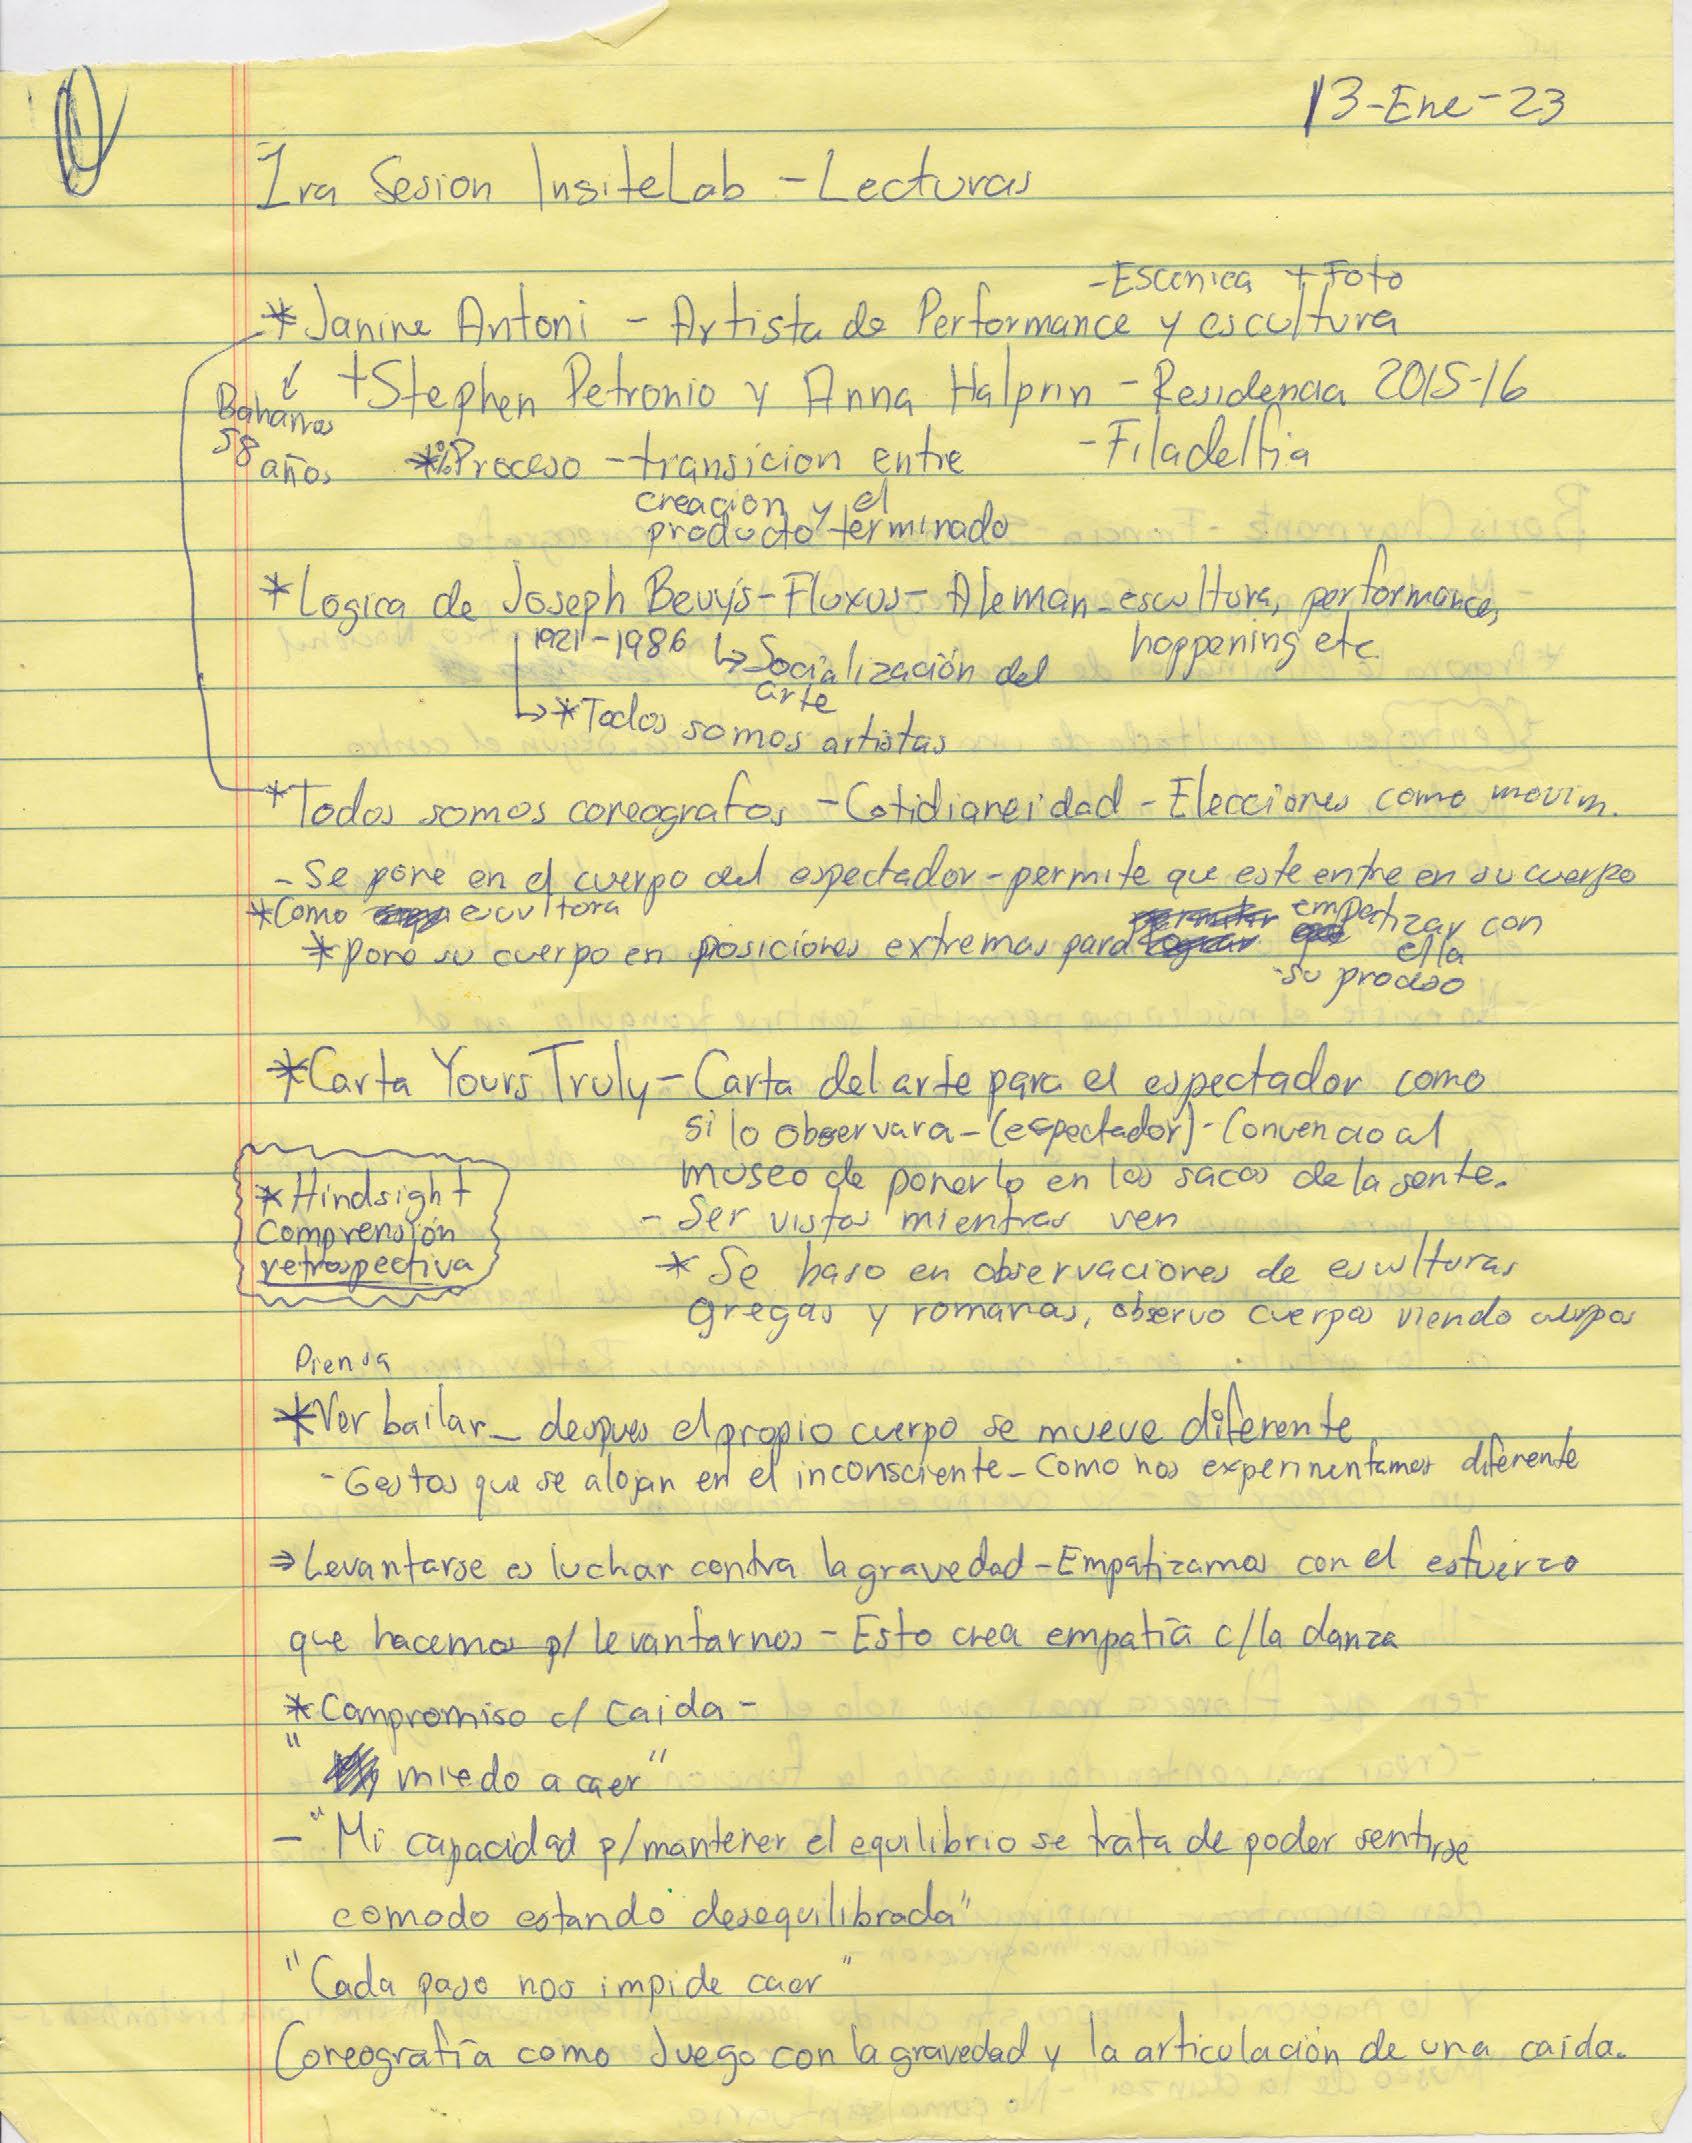 13-Ene-23
1ra Sesion InsiteLab - Lecturas
- Escenica + Foto
*Janine Antoni - Artista de Performance y escultura
+ Stephen Petronio y Anna Halprin - Residencia 2015-16
Bahamas
58
años
- Filadelfia
* Proceso - transicion entre
creacion y el
producto terminado
*Logica de Joseph Beuys - Fluxus - Aleman - escultura, performance,
hoppening etc
1921-1986 ↳ Socialización del
arte
↳ *Todos somos artistas
*Todos somos coreografos - Cotidianeidad - Elecciones como movim.
- Se pone" en el cuerpo del espectador - permite que este entre en su cuerpo
*Como escultora
* pone su cuerpo en posiciones extremas para empatizar con
ella
- su proceso
*Carta Yours Truly - Carta del arte para el espectador como
si lo observara - (espectador) - Convencio al
museo de ponerlo en los sacos de la gente.
- Ser vistos mientras ven
* Se baso en observaciones de esculturas
gregas y romanas, observo cuerpos viendo cuerpos
*Hindsight
Comprensión
retrospectiva
Piensa
*Ver bailar - despues el propio cuerpo se mueve diferente
- Gestos que se alojan en el inconsciente - Como nos experimentamos diferente
⇒ Levantarse es luchar contra la gravedad - Empatizamos con el esfuerzo
que hacemos p/ levantarnos - Esto crea empatía c/ la danza
*Compromiso c/ caida -
" miedo a caer"
- "Mi capacidad p/ mantener el equilibrio se trata de poder sentirse
comodo estando desequilibrada"
"Cada paso nos impide caer"
Coreografía como Juego con la gravedad y la articulación de una caida.